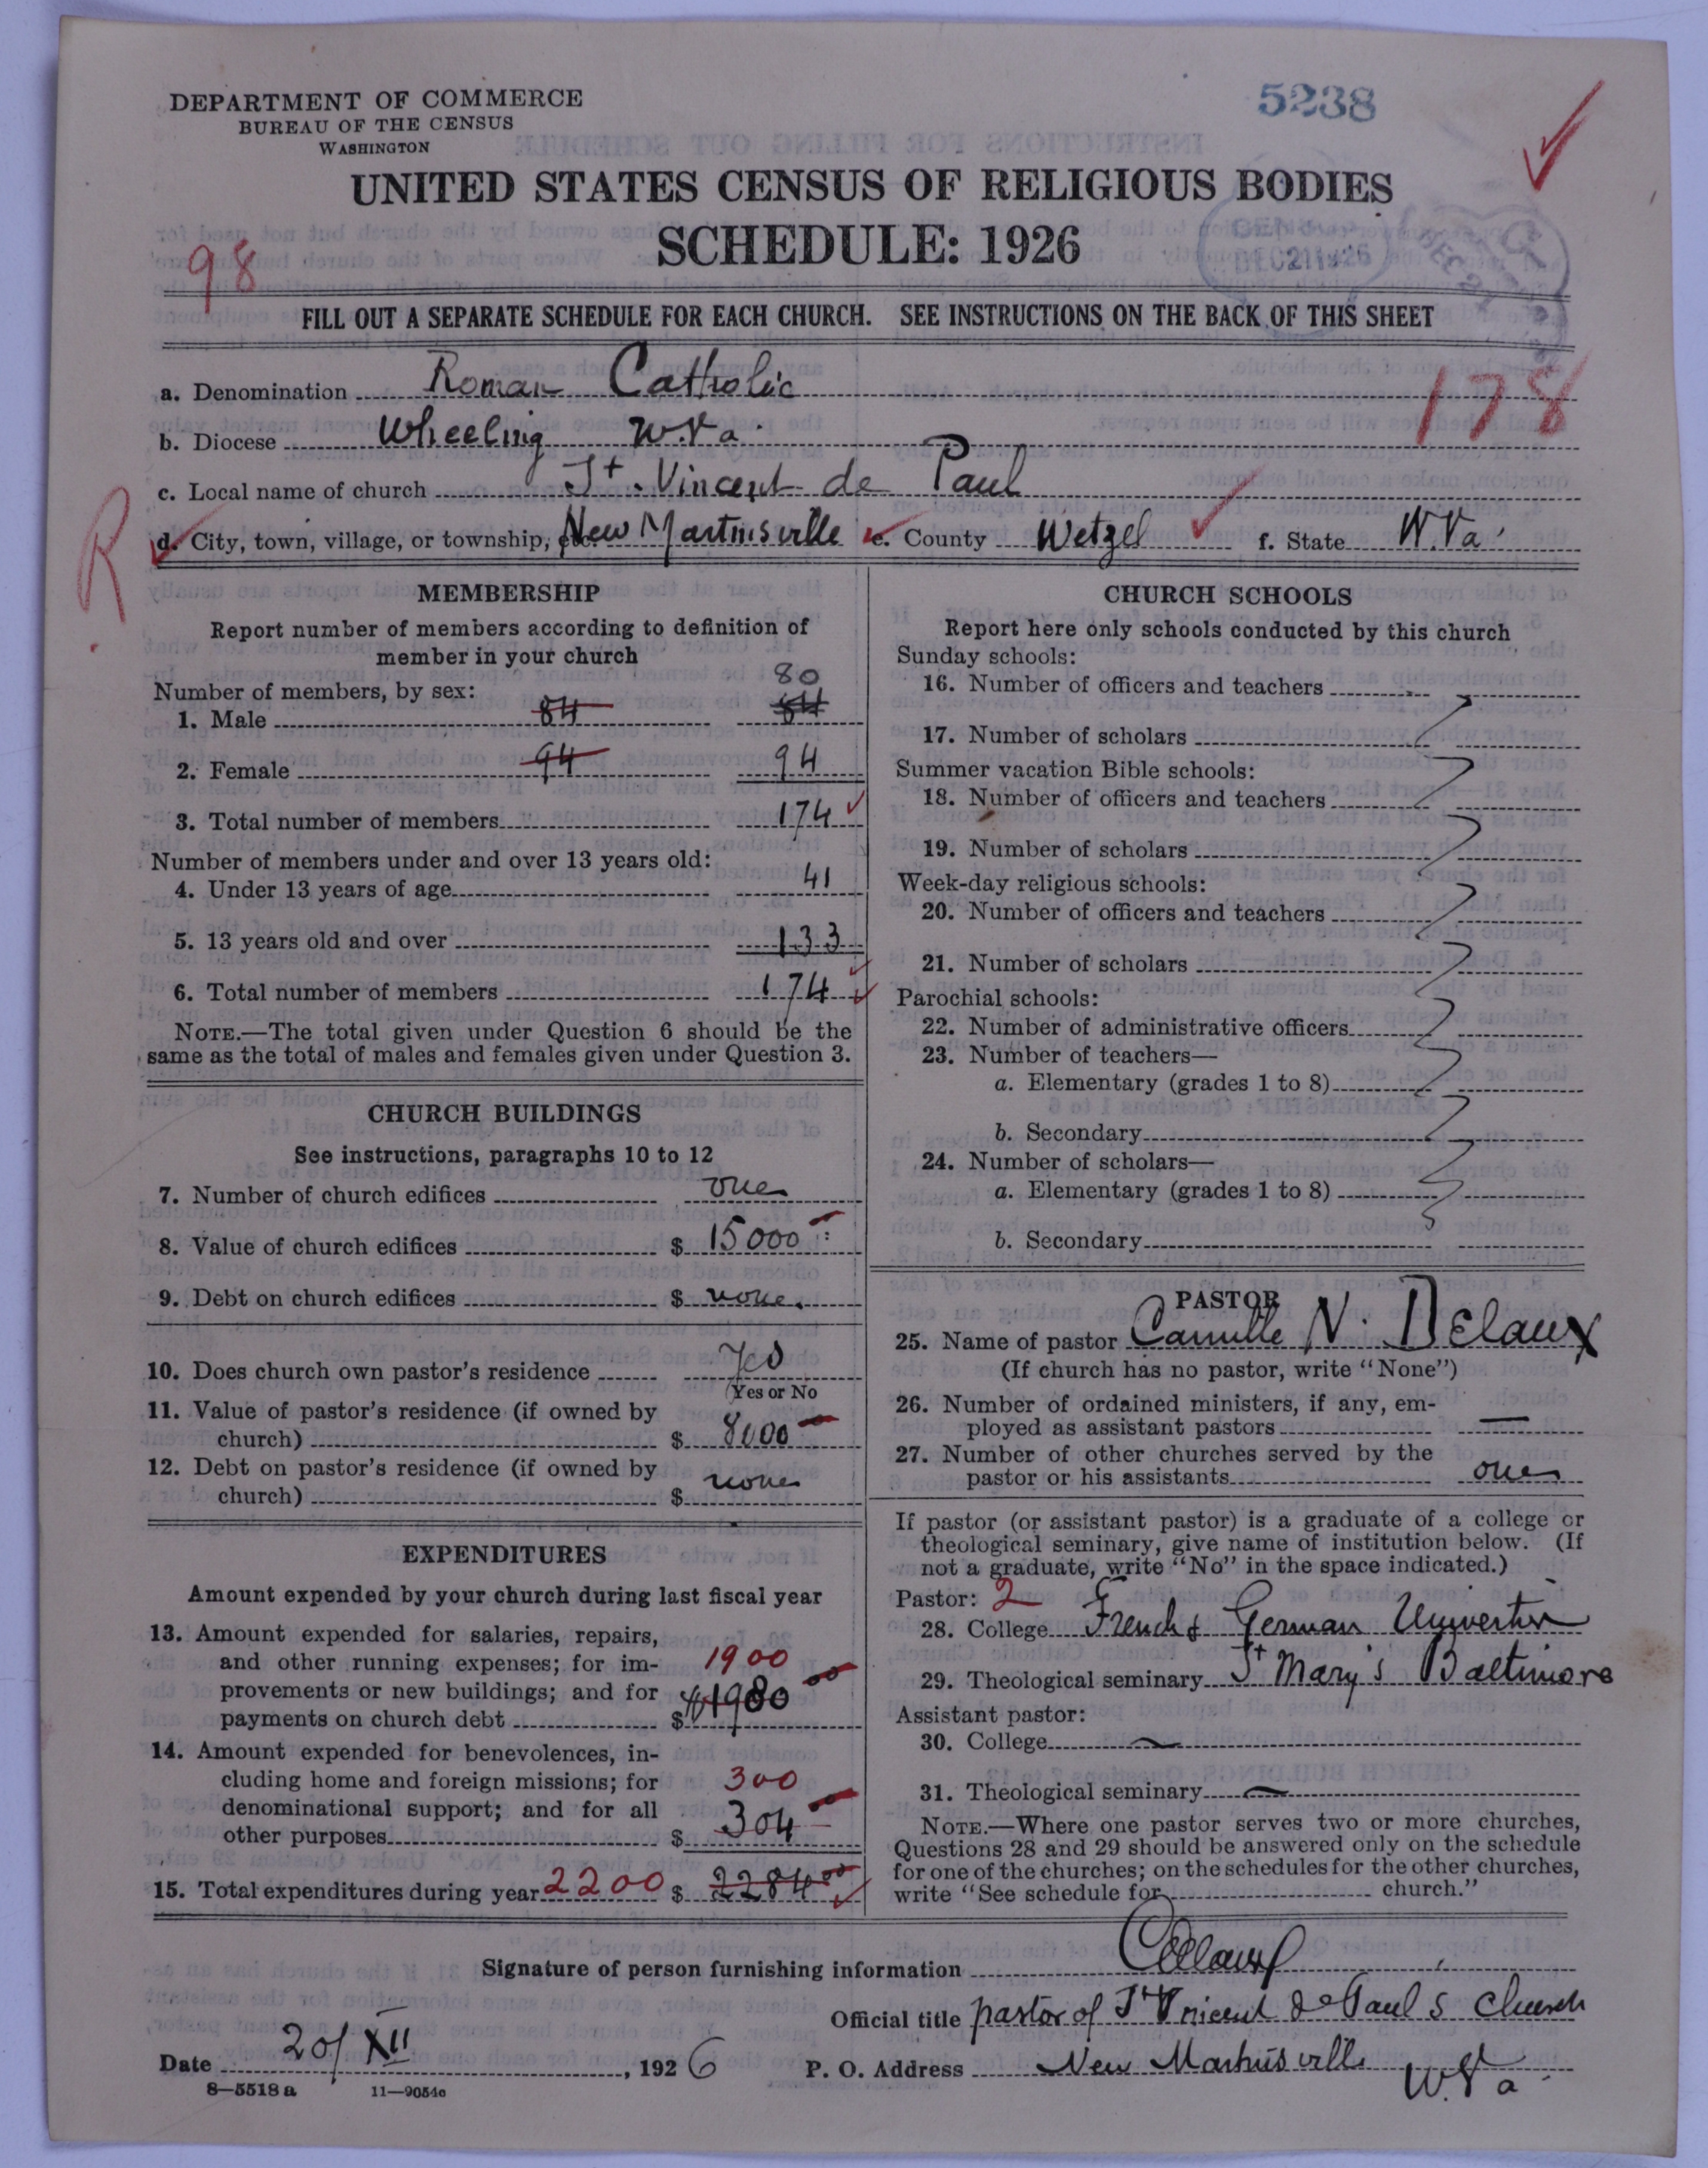 5238
DEPARTMENT OF COMMERCE
BUREAU OF THE CENSUS
WASHINGTON
UNITED STATES CENSUS OF RELIGIOUS BODIES
SCHEDULE: 1926
98
FILL OUT A SEPARATE SCHEDULE FOR EACH CHURCH. SEE INSTRUCTIONS ON THE BACK OF THIS SHEET
a. Denomination Roman Catholic
178
b. Diocese Wheeling W.Va.
c. Local name of church St. Vincent de Paul
R
d. City, town, village, or township, etc. New Martinsville e. County Wetzel f. State W.Va
MEMBERSHIP
Report number of members according to definition of
member in your church
Number of members, by sex:
80
1. Male 84 84
2. Female 94 94
3. Total number of members 174
Number of members under and over 13 years old:
4. Under 13 years of age 41
5. 13 years old and over 133
6. Total number of members 174
NOTE.—The total given under Question 6 should be the
same as the total of males and females given under Question 3.
CHURCH BUILDINGS
See instructions, paragraphs 10 to 12
7. Number of church edifices one
8. Value of church edifices $ 15000
9. Debt on church edifices $ none.
10. Does church own pastor's residence Yes
Yes or No
11. Value of pastor's residence (if owned by
church) $ 8000
12. Debt on pastor's residence (if owned by
church) $ none
EXPENDITURES
Amount expended by your church during last fiscal year
13. Amount expended for salaries, repairs,
and other running expenses; for im- 1900
provements or new buildings; and for
payments on church debt $ 1980 00
14. Amount expended for benevolences, in-
cluding home and foreign missions; for 300
denominational support; and for all
other purposes $ 304
15. Total expenditures during year 2200 $ 2284 00
CHURCH SCHOOLS
Report here only schools conducted by this church
Sunday schools:
16. Number of officers and teachers
17. Number of scholars
Summer vacation Bible schools:
18. Number of officers and teachers
19. Number of scholars
Week-day religious schools:
20. Number of officers and teachers
21. Number of scholars
Parochial schools:
22. Number of administrative officers
23. Number of teachers—
a. Elementary (grades 1 to 8)
b. Secondary
24. Number of scholars—
a. Elementary (grades 1 to 8)
b. Secondary
PASTOR
25. Name of pastor Camille N. Delaux
(If church has no pastor, write "None")
26. Number of ordained ministers, if any, em-
ployed as assistant pastors —
27. Number of other churches served by the
pastor or his assistants one
If pastor (or assistant pastor) is a graduate of a college or
theological seminary, give name of institution below. (If
not a graduate, write "No" in the space indicated.)
Pastor: 2
28. College French & German
29. Theological seminary St Mary's Baltimore
Assistant pastor:
30. College —
31. Theological seminary —
NOTE.—Where one pastor serves two or more churches,
Questions 28 and 29 should be answered only on the schedule
for one of the churches; on the schedules for the other churches,
write "See schedule for church."
Signature of person furnishing information CDelaux
Official title pastor of St Vincent de Paul's church
Date 20/XII, 1926 P. O. Address New Martinsville W.Va.
8—5518 a 11—9054c